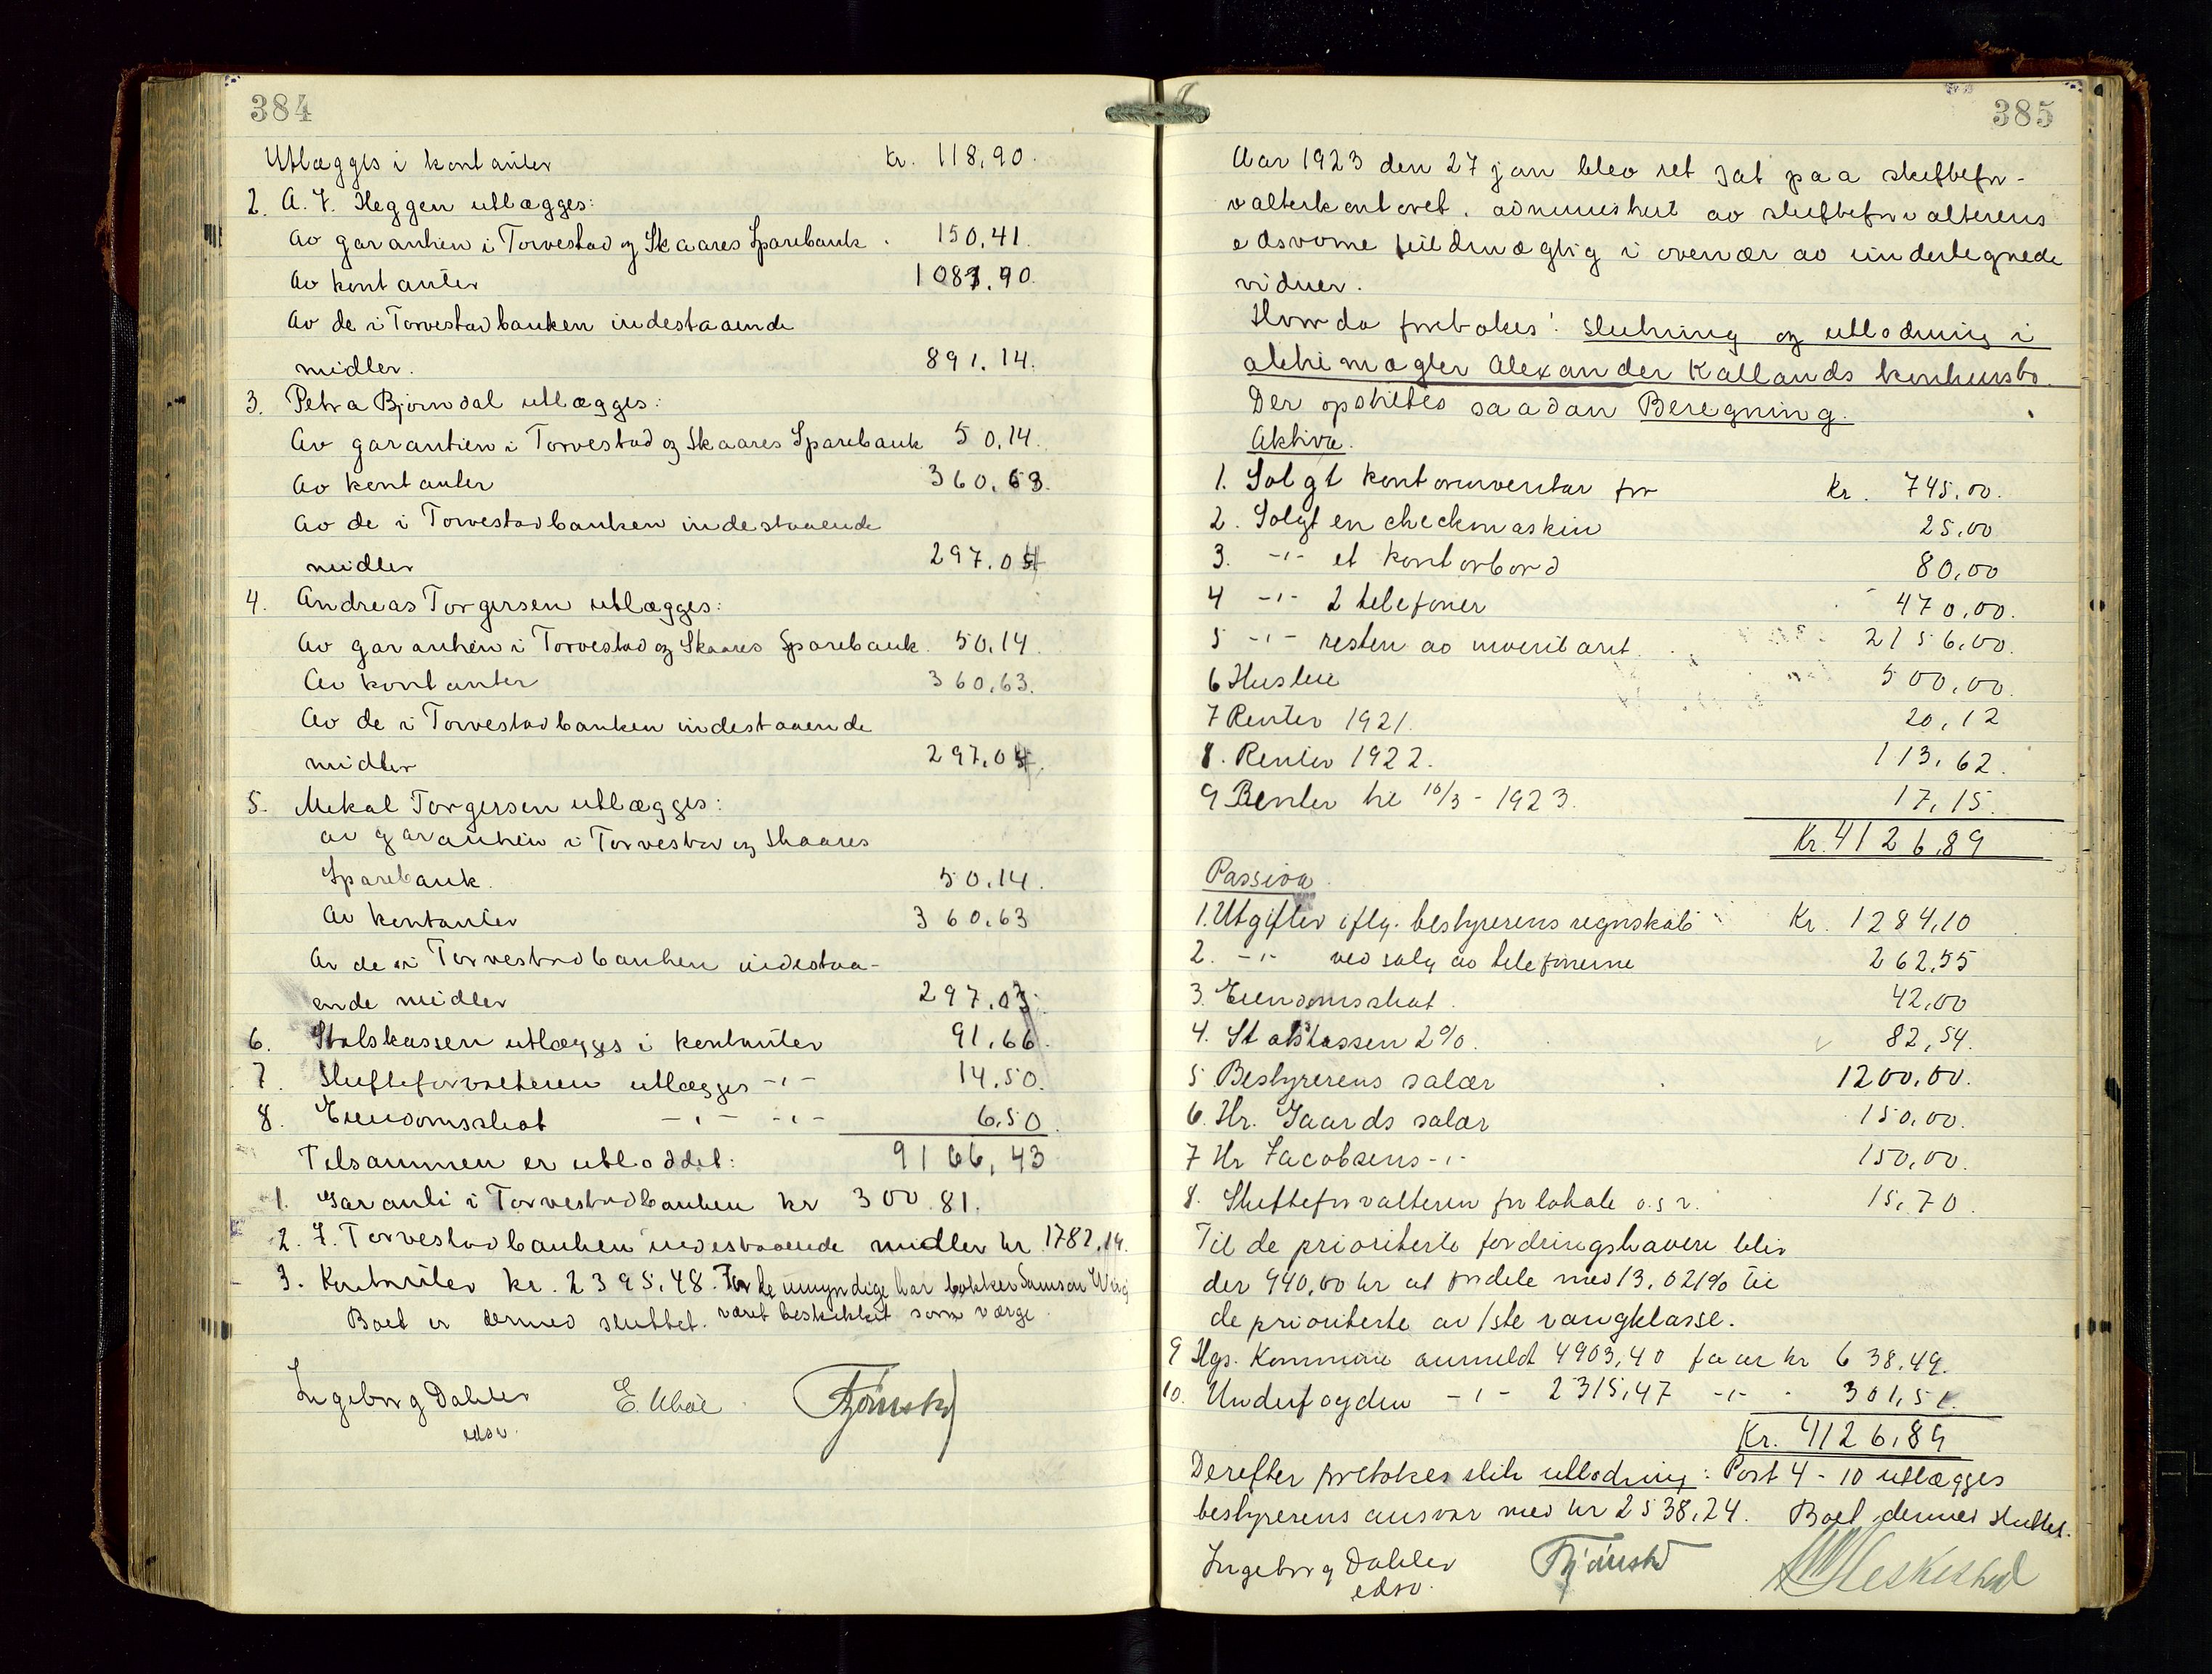 384
Utlægges i kontanter kr. 118,90.
2. A. J. Heggen utlægges:
Av garantien i Torvestad og Skaares Sparebank. 150,41.
Av kontanter 1081,90.
Av de i Torvestadbanken indestaaende
midler. 891,14.
3. Petra Bjørndal utlægges:
Av garantien i Torvestad og Skaares Sparebank 50,14.
Av kontanter 360,63.
Av de i Torvestadbanken indestaaende
midler 297,04
4. Andreas Torgersen utlægges:
Av garantien i Torvestad og Skaares Sparebank. 50,14.
Av kontanter 360,63.
Av de i Torvestadbanken indestaaende
midler 297,04.
5. Mekal Torgersen utlægges:
av garantien i Torvestad og Skaares
Sparebank. 50,14.
Av kontanter 360,63
Av de i Torvestadbanken indestaa-
ende midler 297,03.
6. Statskassen utlægges i kontanter 91,66.
7. Skifteforvalteren utlægges -"- 14,50.
8. Eiendomsskat -"- -"- 6,50.
Tilsammen er utloddet: 9166,43
1. Garanti i Torvestadbanken kr 300.81.
2. I Torvestadbanken indestaaende midler kr 1782,14.
3. Kontanter kr. 2395,48. For de umyndige har bøkker Samson
Boet er dermed sluttet. været beskikket som værge.
Ingeborg Dahler
edsv.
385
Aar 1923 den 27 jan blev ret sat paa skiftefor-
valterkontoret, administrert av skifteforvalterens
edsvorne fuldmægtig i overvær av undertegnede
vidner.
Hvorda foretokes: Slutning og utlodning i
aktiemægler Alexander Kallands konkursbo.
Der opstilles saadan Beregning.
Aktiva.
1. Solgt kontorinventar for Kr. 745,00.
2. Solgt en checkmaskin 25,00
3. -"- et kontorbord 80,00
4 -"- 2 telefoner 470,00.
5 -"- resten av inventaret. 2156,00.
6 Husleie 500,00.
7 Renter 1921. 20,12
8. Renter 1922. 113,62.
9 Renter til 10/3 - 1923. 17,15.
Kr. 4126,89
Passiva.
1. Utgifter iflg. bestyrerens regnskab Kr. 1284,10
2. -"- ved salg av telefonerne 262,55
3. Eiendomsskat. 42,00
4. Statskassen 2%. 82,54.
5 Bestyrerens salær 1200,00.
6. Hr. Gaards salær 150,00.
7 Hr Jacobsens -"- 150,00.
8. Skifteforvalteren for lokale o.s.v. 15,70.
Til de prioriterte fordringshavere blir
der 940,00 kr at fordele med 13,021% til
de prioriterte av 1ste rangklasse.
9 Hgs. Kommune anmeldt 4903,40 faar kr 638,49.
10. Underfogden -"- 2315,47 -"- 301,51.
Kr. 4126,89
Derefter foretokes slik utlodning: Post 4 - 10 utlægges
bestyrerens ansvar med kr 2538,24. Boet dermed sluttet.
Ingeborg Dahler
edsv.